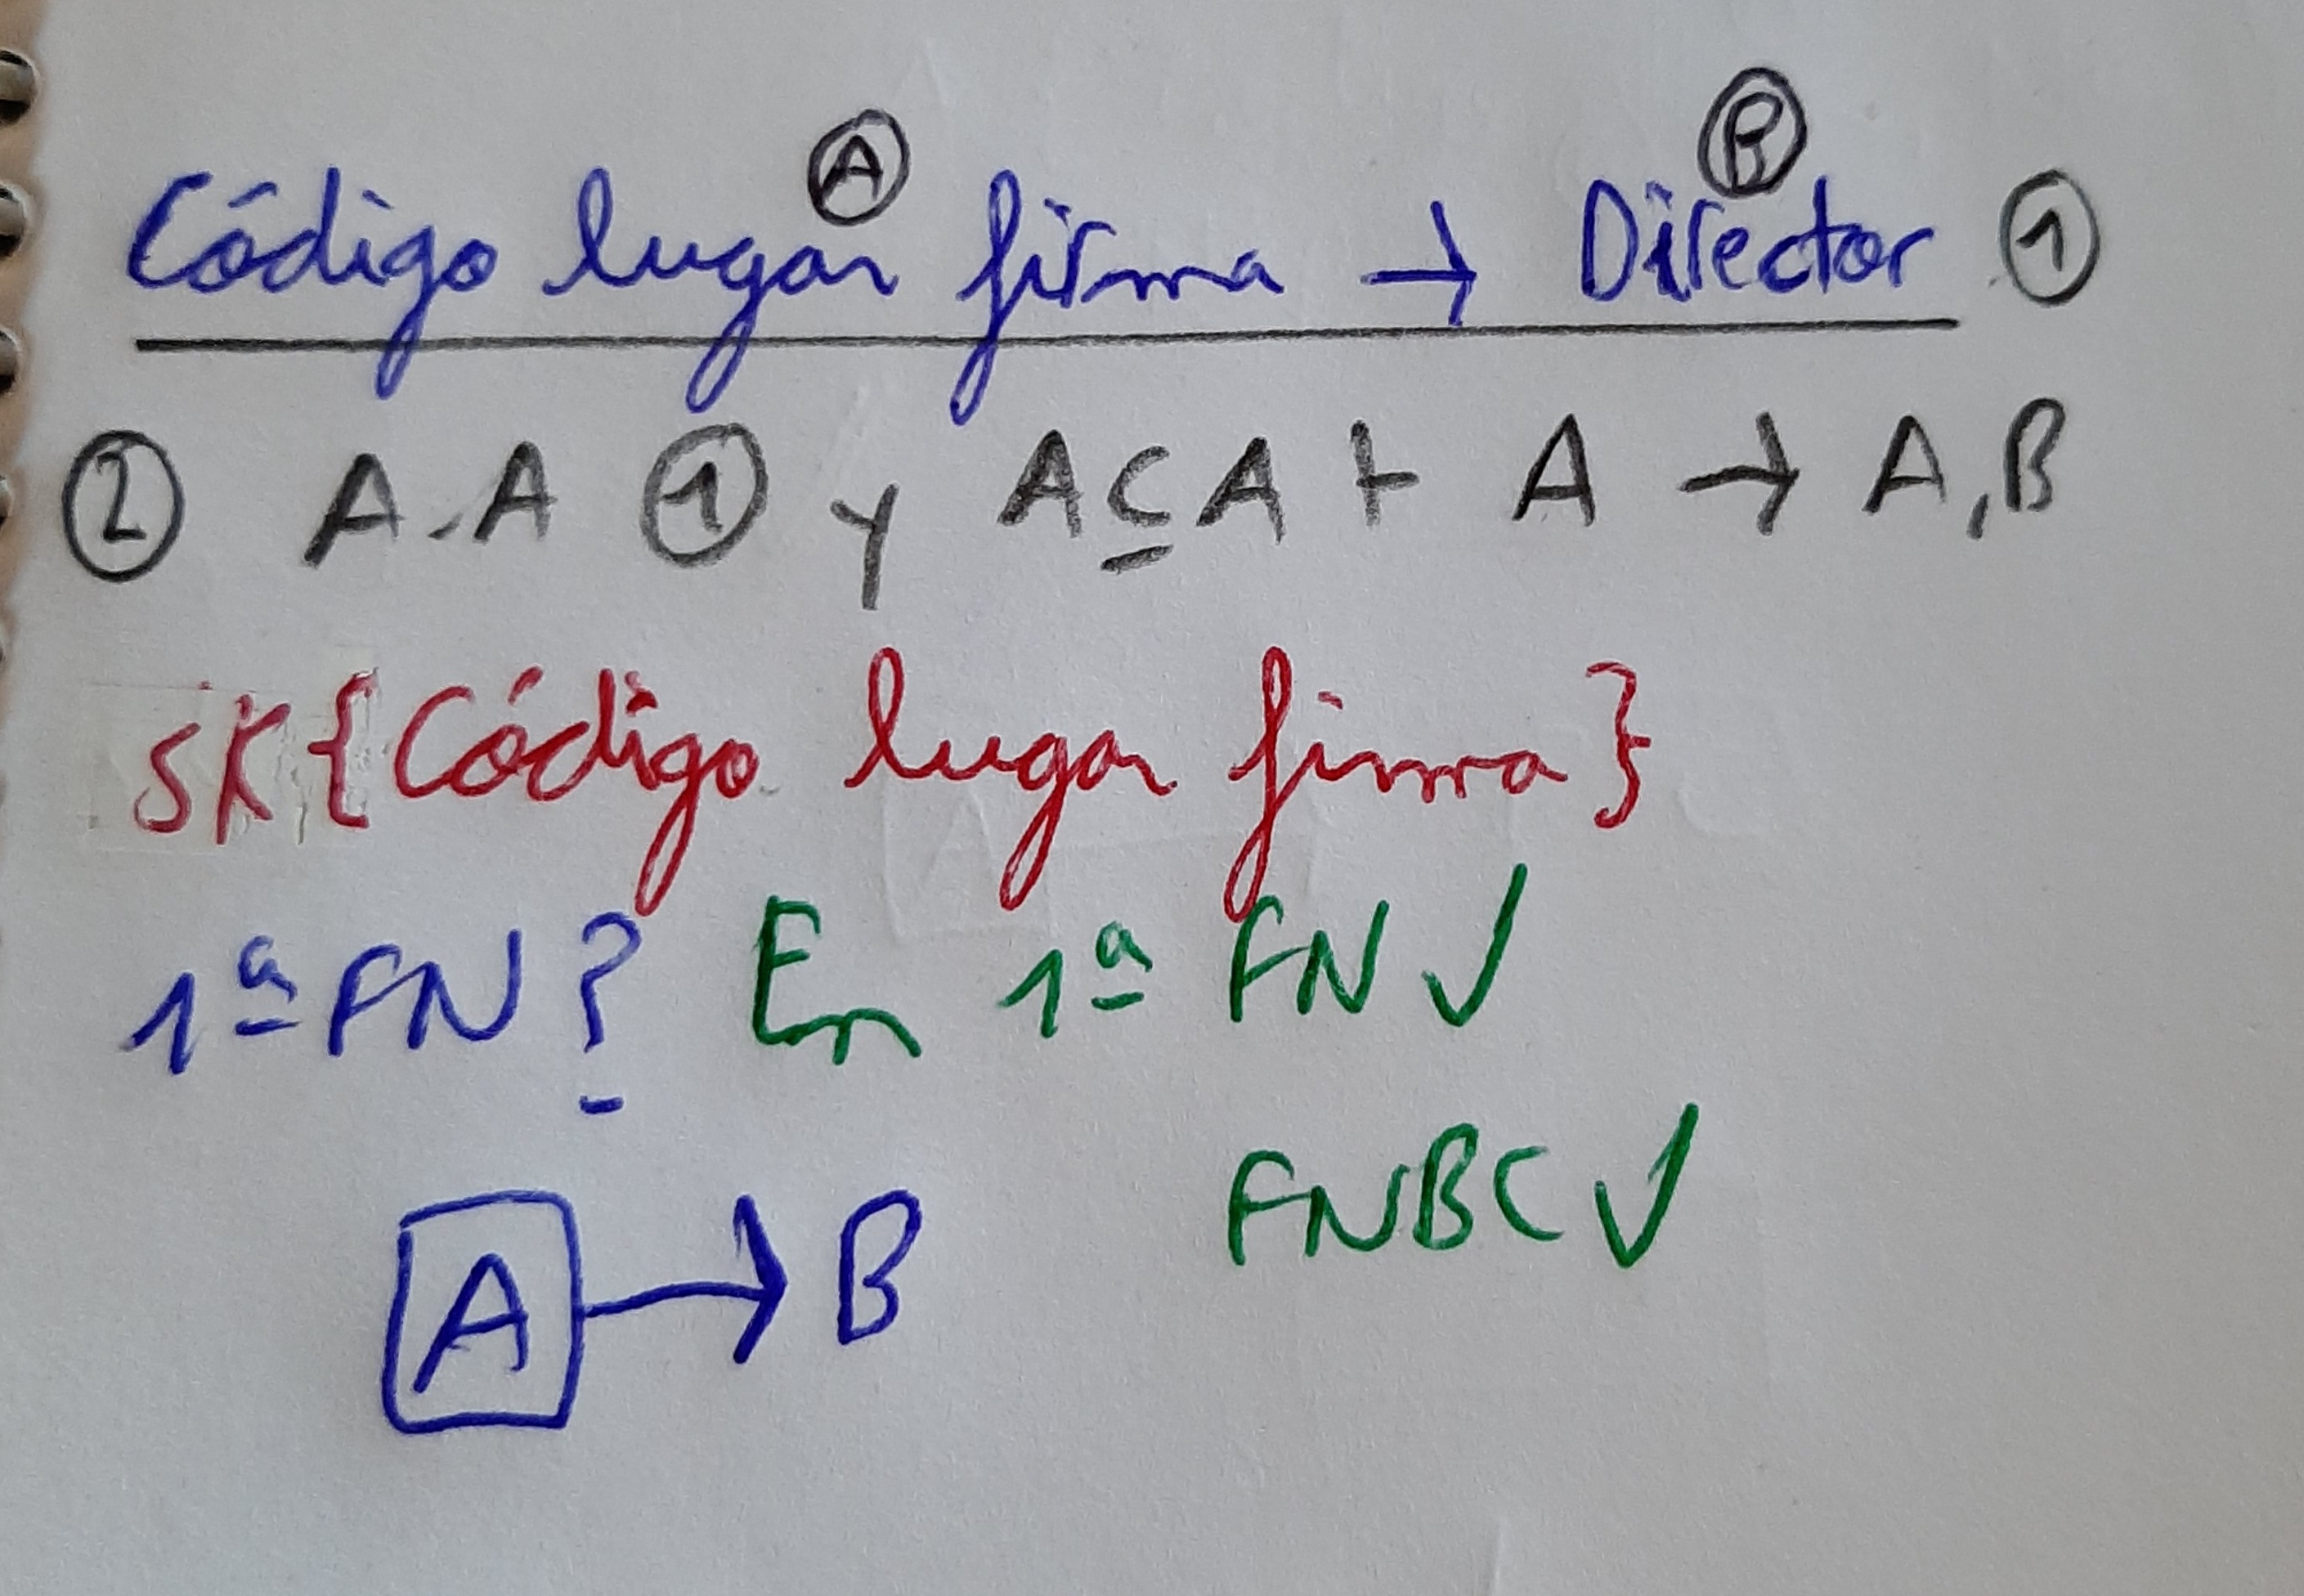 Ⓐ Ⓑ
Código lugar firma → Director ①
② A.A ① y A ⊆ A ⊢ A → A,B
SK{Código lugar firma}
1ª FN? En 1ª FN ✓
FNBC ✓
A → B